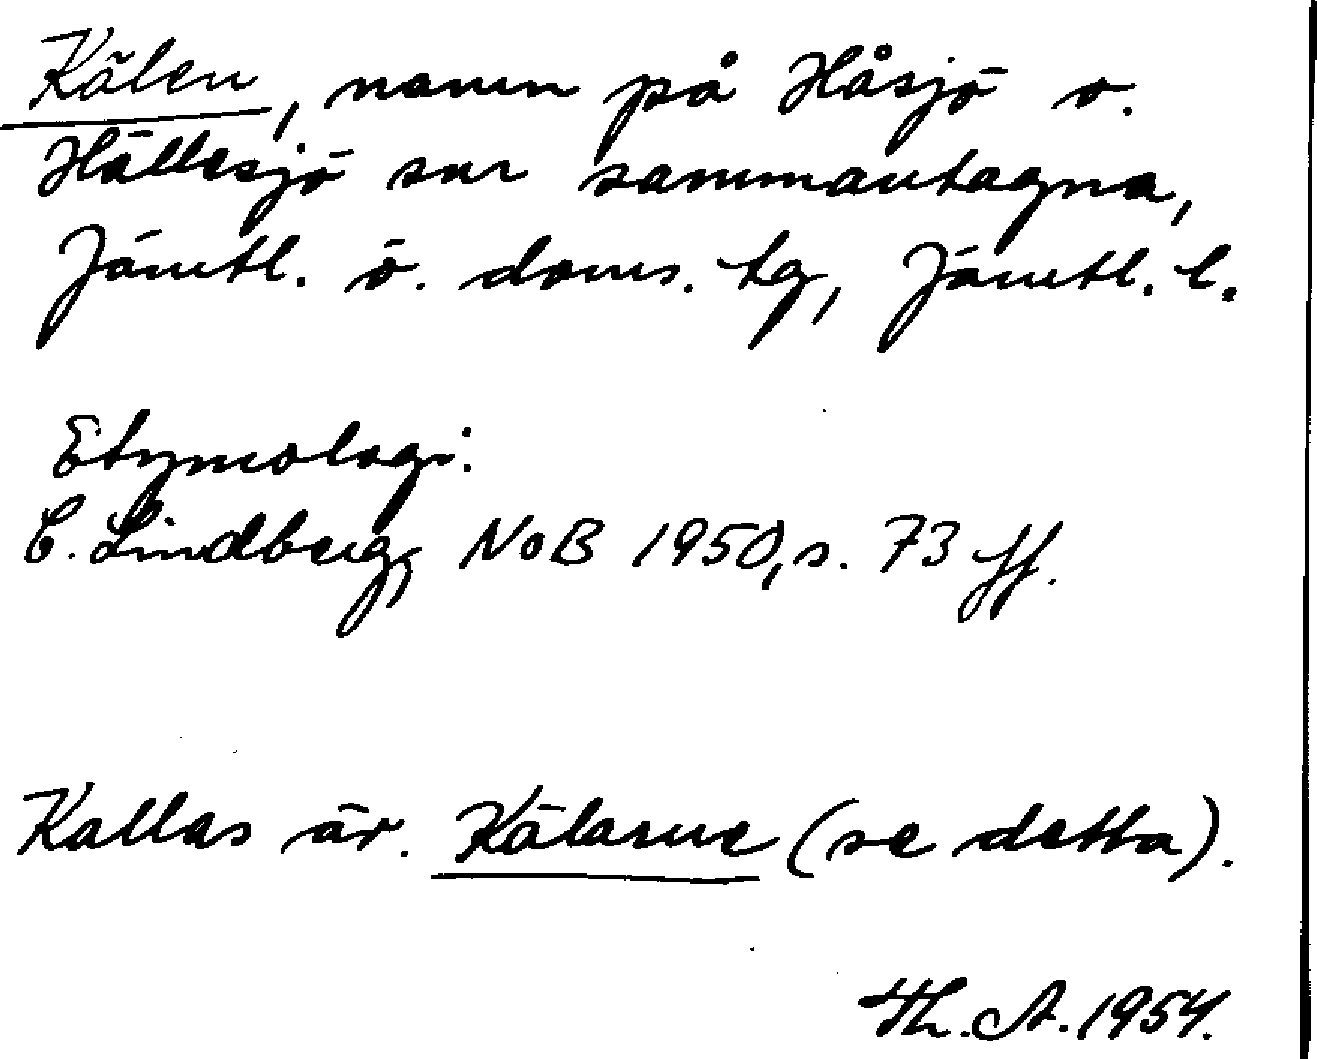 Kälen, namn på Håsjö o.
Hällesjö snr sammantagna,
Jämtl. ö. doms. tg, Jämtl. l.
Etymologi:
C. Lindberg, NoB 1950, s. 73 ff.
Kallas äv. Kälarne (se detta).
Th. A. 1954.